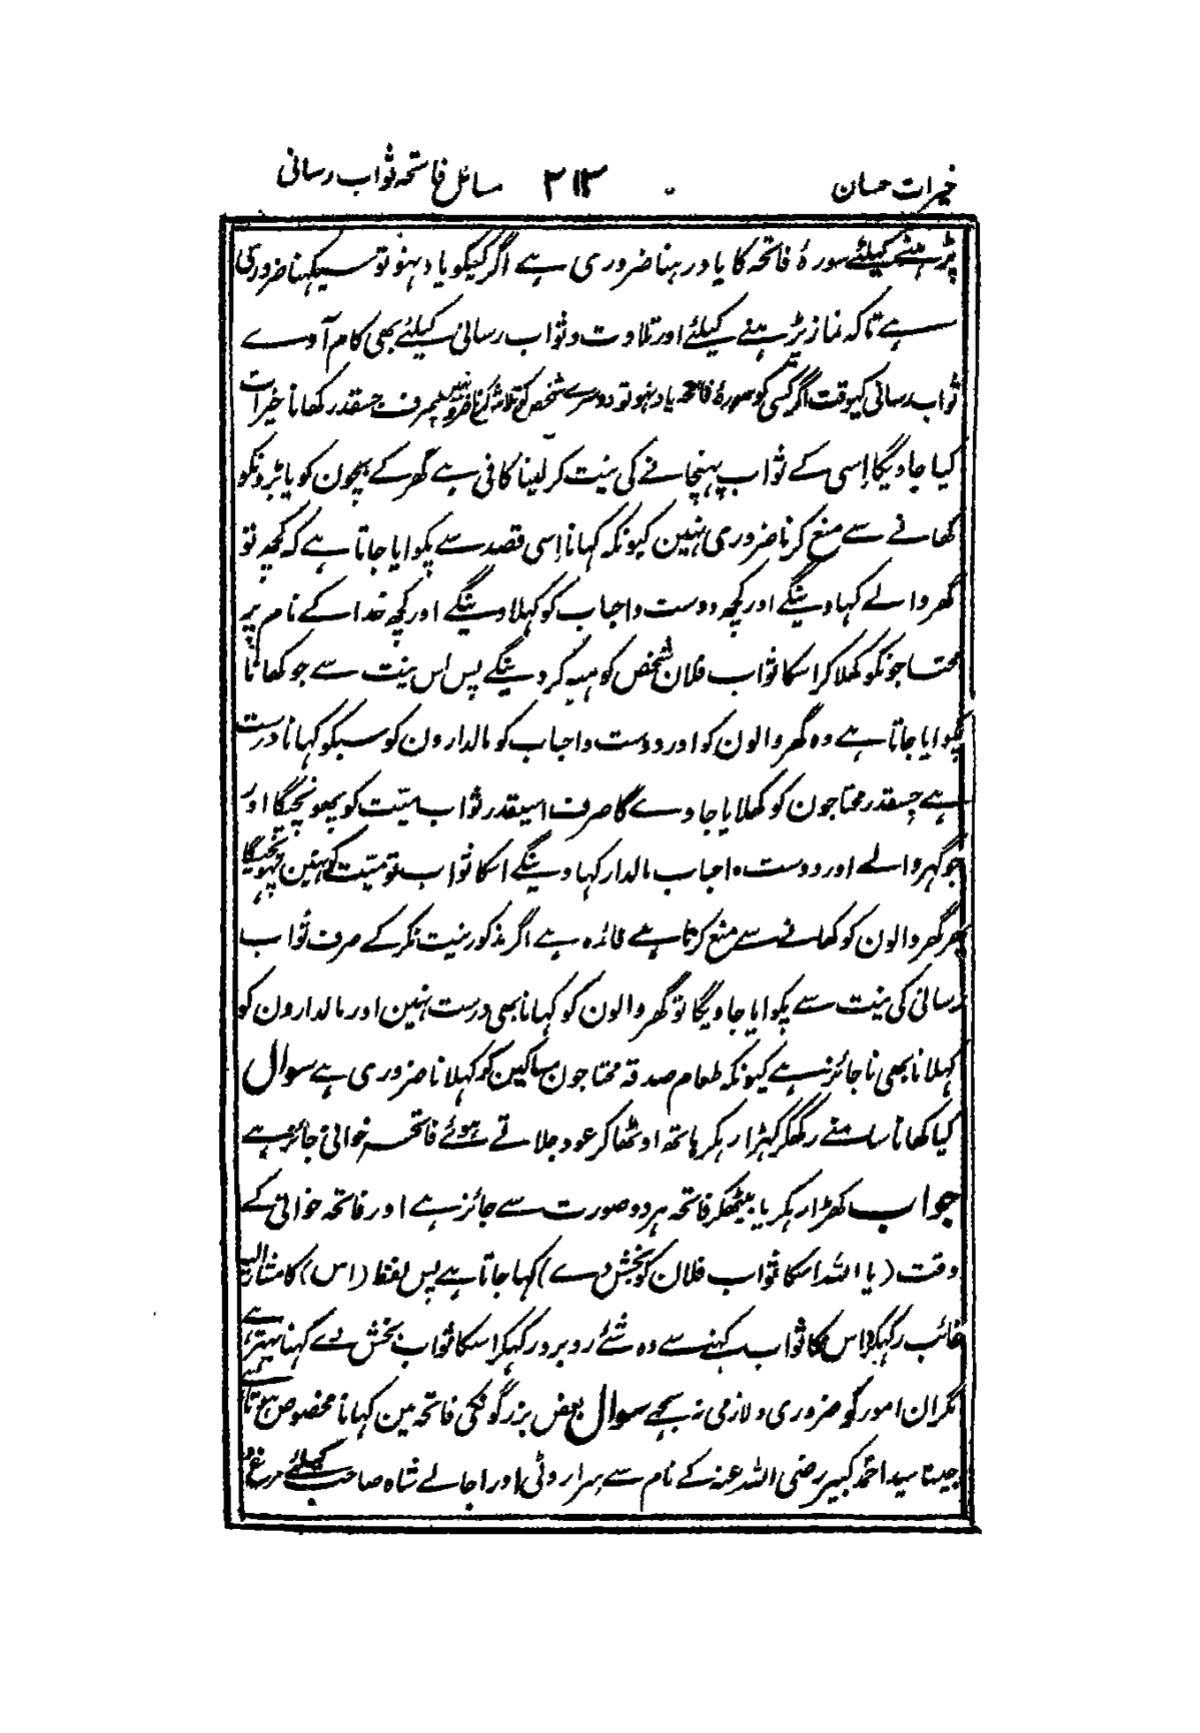 خیرات حسان ۲۱۳ مسائل فاتحہ ثواب رسانی
پڑہنے کیلئے سورۂ فاتحہ کا یاد رہنا ضروری ہے اگر کسیکو یاد نہو تو سیکہنا ضروری
ہے تاکہ نماز پڑہنے کیلئے اور تلاوت و ثواب رسانی کیلئے بھی کام آوے
ثواب رسانی کیوقت اگر کسی کو سورۂ فاتحہ یاد نہو تو دوسرے شخص کو تلاش کرنا ضرور نہیں صرف جسقدر کھانا خیرات
کیا جاویگا اِسی کے ثواب پہنچانے کی نیت کر لینا کافی ہے گھر کے بچون کو یا بڑونکو
کھانے سے منع کرنا ضروری نہین کیونکہ کہانا اِسی قصد سے پکوایا جاتا ہے کہ کچھ تو
گھر والے کہاوینگے اور کچھ دوست و احباب کو کہلاوینگے اور کچھ خدا کے نام پر
محتاجونکو کھلا کر اسکا ثواب فلان شخص کو ہبہ کر دینگے پس اس نیت سے جو کھانا
پکوایا جاتا ہے وہ گھر والون کو اور دوست و احباب کو مالدارون کو سبکو کہانا درست
ہے جسقدر محتاجون کو کھلایا جاوے گا صرف اسیقدر ثواب میّت کو پہونچیگا اور
جو گہر والے اور دوست و احباب مالدار کہاوینگے اسکا ثواب تو میّت کو نہین پہونچیگا
پھر گھر والون کو کھانے سے منع کرنا بے فائدہ ہے اگر مذکور نیت نکر کے صرف ثواب
رسانی کی نیت سے پکوایا جاویگا تو گھر والون کو کہانا بھی درست نہین اور مالدارون کو
کہلانا بھی ناجائز ہے کیونکہ طعام صدقہ محتاجون مساکین کو کہلانا ضروری ہے سوال
کیا کھانا سامنے رکھکر کہڑا رہکر ہاتھ اوٹھا کر عود جلاتے ہوئے فاتحہ خوانی جائز ہے
جواب کھڑا رہکر یا بیٹھکر فاتحہ ہر دو صورت سے جائز ہے اور فاتحہ خوانی کے
وقت (یا اللہ اسکا ثواب فلان کو بخش دے) کہا جاتا ہے پس لفظ (اس) کا مشار الیہ
غائب رکہکر اس کا ثواب کہنے سے وہ شئے روبرو رکہکر اسکا ثواب بخش دے کہنا بہتر ہے
مگر ان امور کو ضروری و لازمی نہ سمجھے سوال بعض بزرگونکی فاتحہ مین کہانا مخصوص ہوتا
جیسا سید احمد کبیر رضی اللہ عنہ کے نام سے ہرا روٹی اور اجالے شاہ صاحب کیلئے مرغ